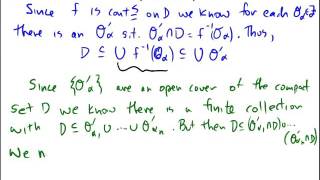 Since f is conts on D we know for each O_α ∈ F
there is an O'_α s.t. O'_α ∩ D = f⁻¹(O_α). Thus,
D ⊆ ∪ f⁻¹(O_α) ⊆ ∪ O'_α
Since {O'_α} are an open cover of the compact
set D we know there is a finite collection
with D ⊆ O'_α₁ ∪ ⋯ ∪ O'_αₙ. But then D ⊆ (O'_α₁ ∩ D) ∪ ⋯
(O'_αₙ ∩ D)
We n